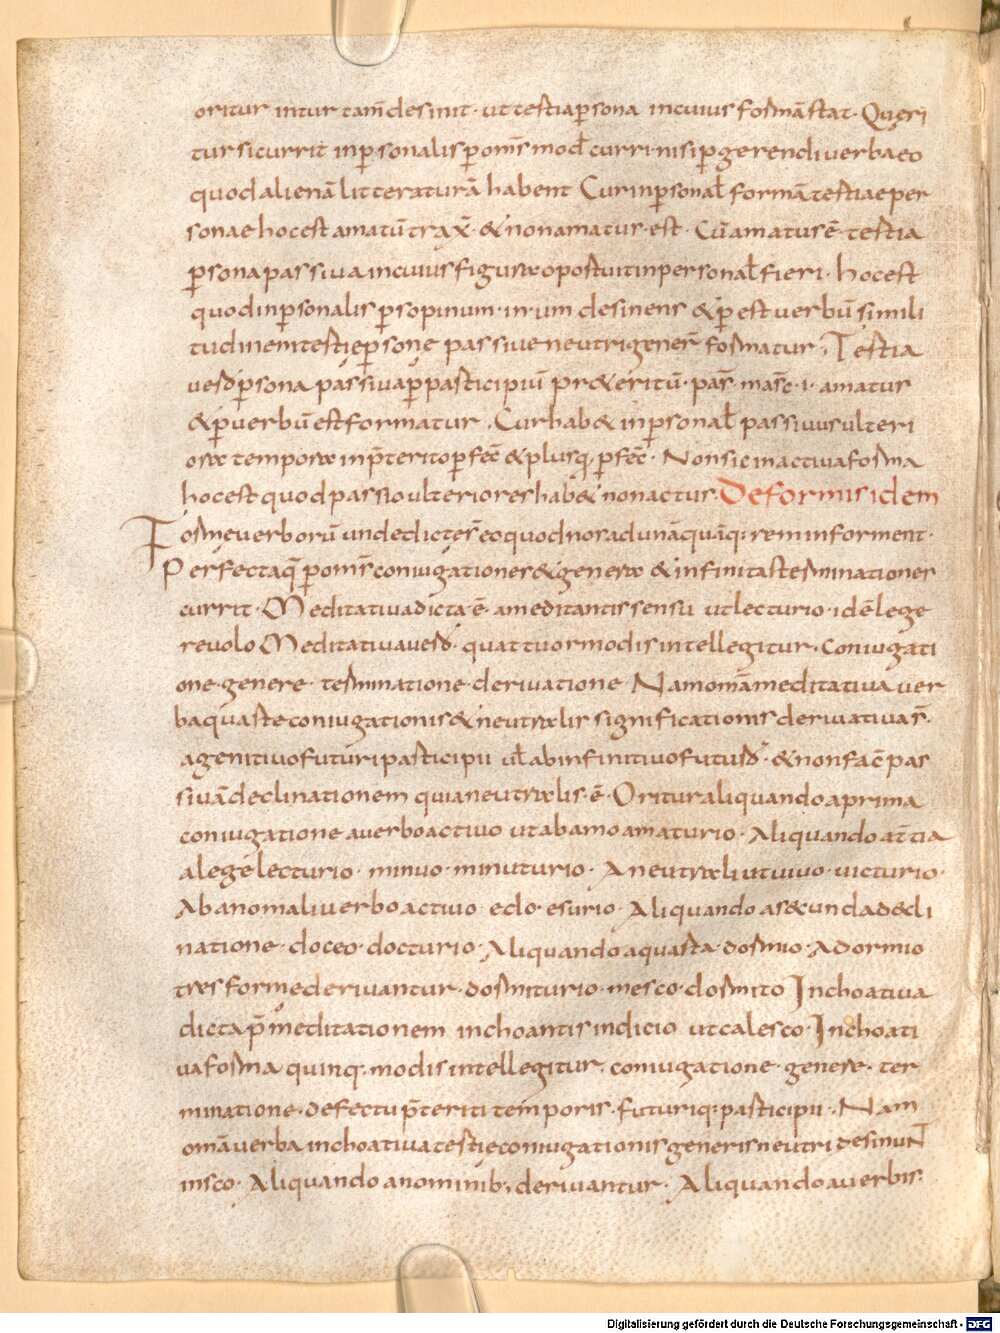 oritur intur tam̄ desinit · ut tertia ꝑsona incuius formā stat · Queri
tur si currit inꝑsonalis ꝑ om̄s mod̄ curri · nisi ꝑ gerendi uerba eo
quod alienā litteraturā habent Cur inꝑsonal̄ formā tertiae per
sonae hoc est amatū trax̄ · & non amatur · est · Cū amatus ē · tertia
ꝑsona passiua incuius figura oportuit inpersonal̄ fieri · hoc est
quod inꝑsonalis ꝑ sopinum · in · um desinens & ꝑ est uerbū simili
tudinem tertię ꝑsonę passiue neutri gener̄ formatur ; Tertia
uero ꝑsona passiua ꝑ participiū pr&eritū · par̄ · masc̄ · i · amatus
& ꝑ uerbū est formatur · Cur hab& inꝑsonal̄ passiuus ulteri
ora tempora in p̄terito ꝑfec̄ & plusq; ꝑfec̄ · Non sic in actiua forma
hoc est quod passio ulteriores hab& non actus · De formis idem
Forme uerborū unde dictęs̄ eo quod nos ad unāquāq; rem informent ·
Perfecta q̄ ꝑ om̄s coniugationes & genera & infinitas terminationes
currit · Meditatiua dicta ē · a meditantis sensu ut lecturio · idē lege
re uolo Meditatiua uero · quattuor modis intellegitur · coniugati
one · genere · terminatione · deriuatione Nam omā meditatiua uer
ba quarte coniugationis & neutralis significationis deriuatiua s̄ ·
a genitiuo futuri participii ul̄ ab infinitiuo futuro · & non fac̄ pas
siuā declinationem quia neutralis · ē · Oritur aliquando a prima
coniugatione a uerbo actiuo ut ab amo amaturio · Aliquando a t̄tia
a legę lecturio · minuo · minuturio · A neutrali ut uiuo · uicturio ·
Ab anomali uerbo actiuo edo · esurio · Aliquando a s&unda d&cli
natione · doceo · docturio · Aliquando a quarta · dormio · A dormio
tres forme deriuantur · dormiturio · mesco · dormito Inchoatiua
dicta p̄ meditationem inchoantis indicio ut calesco · Inchoati
ua forma quinq; modis intellegitur, coniugatione · genere · ter
minatione · defectu p̄teriti temporis · futuriq; participii · Nam
omā uerba inchoatiua tertię coniugationis generis neutri desinunt
in sco · Aliquando a nominib; deriuantur · Aliquando a uerbis ·
Digitalisierung gefördert durch die Deutsche Forschungsgemeinschaft - DFG